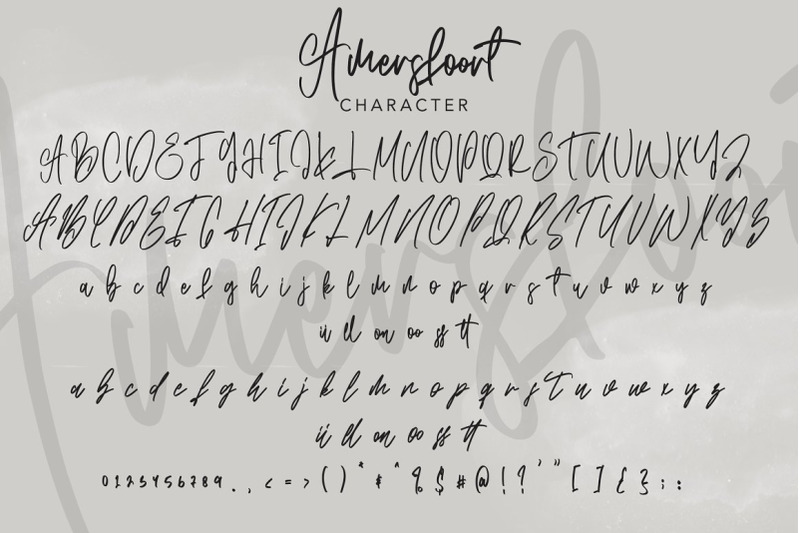 Amersfoort
CHARACTER
ABCDEFGHIJKLMNOPQRSTUVWXYZ
ABCDEFGHIJKLMNOPQRSTUVWXYZ
a b c d e f g h i j k l m n o p q r s t u v w x y z
ii ll on oo ss tt
a b c d e f g h i j k l m n o p q r s t u v w x y z
ii ll on oo ss tt
0123456789 . , < = > ( ) * ^ % $ # @ ! ? ' " [ ] { } ; :